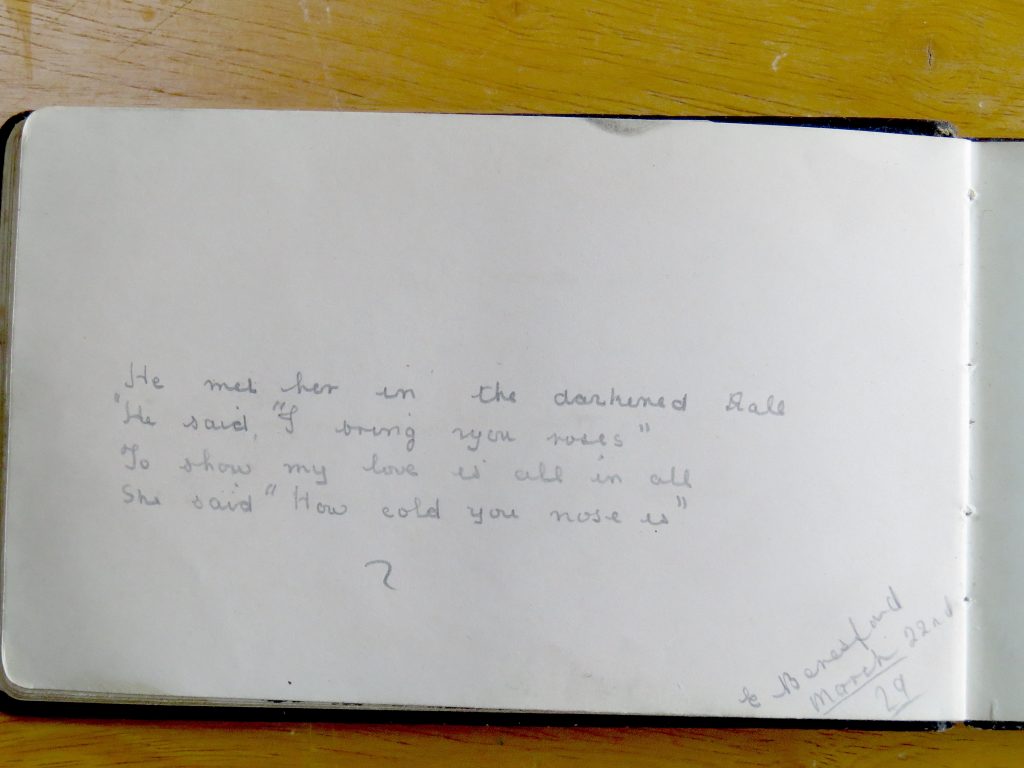 He met her in the darkened Hall
"He said, "I bring you roses"
To show my love is all in all
She said "How cold you nose is"
E Beresford
March 22nd
29